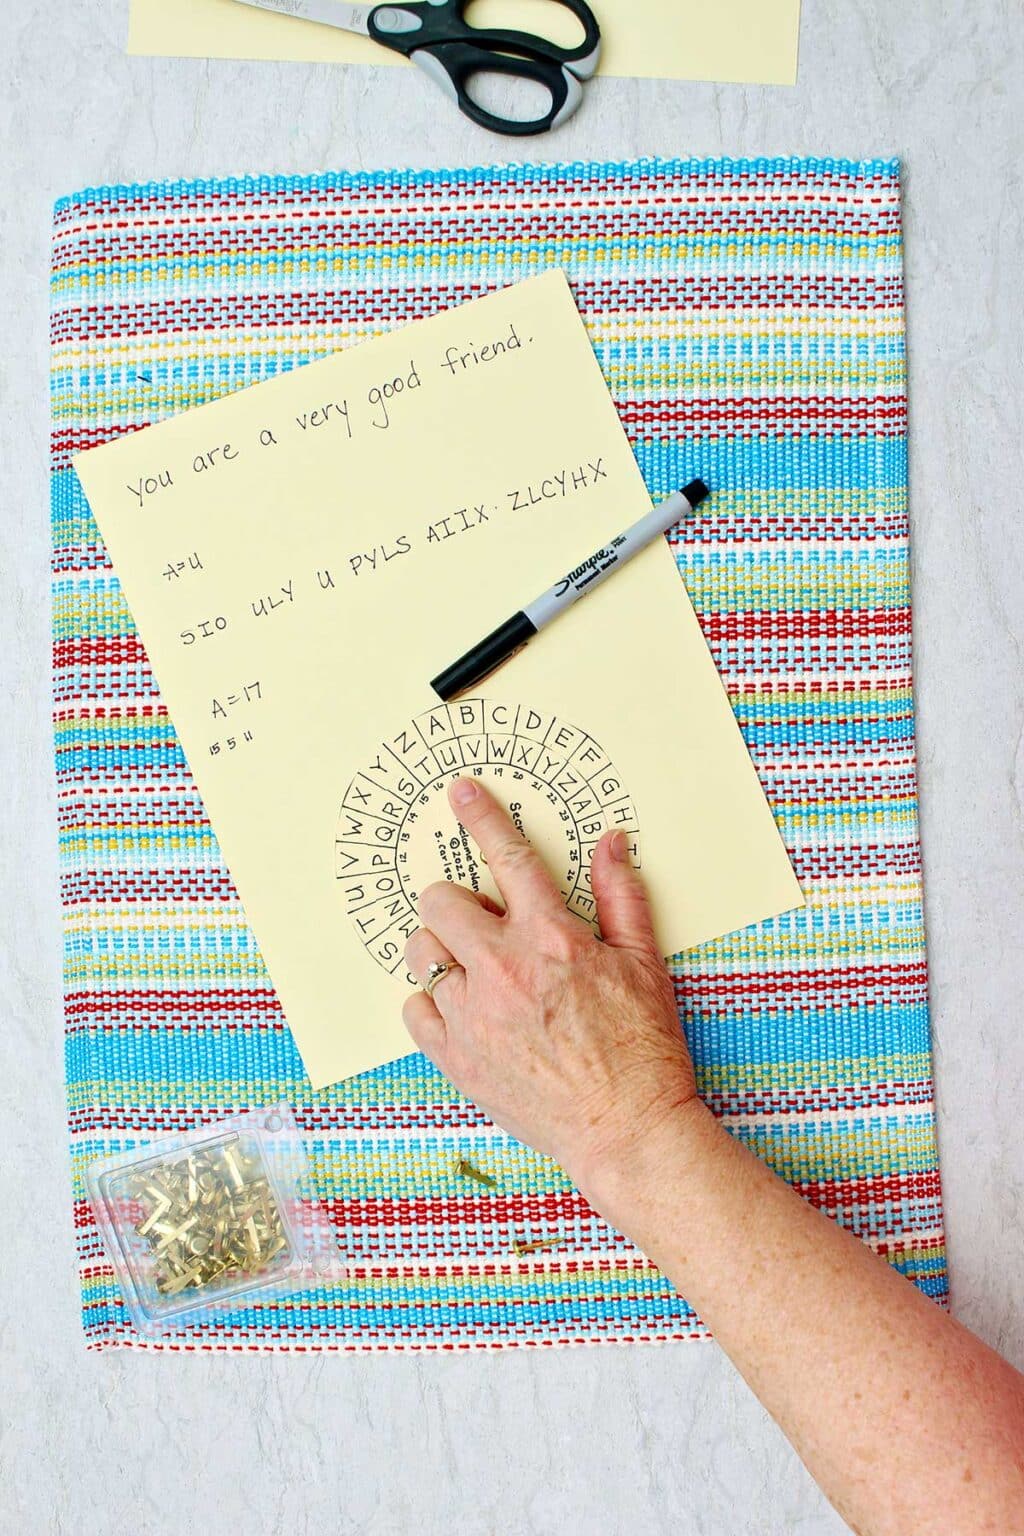 you are a very good friend.
A=U
SIO ULY U PYLS AIIX. ZLCYHX
Sharpie
Permanent Marker
A=17
15 5 11
S T U V W X Y Z A B C D E F G H
M N O P Q R S T U V W X Y Z A B C D E
10 11 12 13 14 15 16 17 18 19 20 21 22 23 24 25 26
©2022